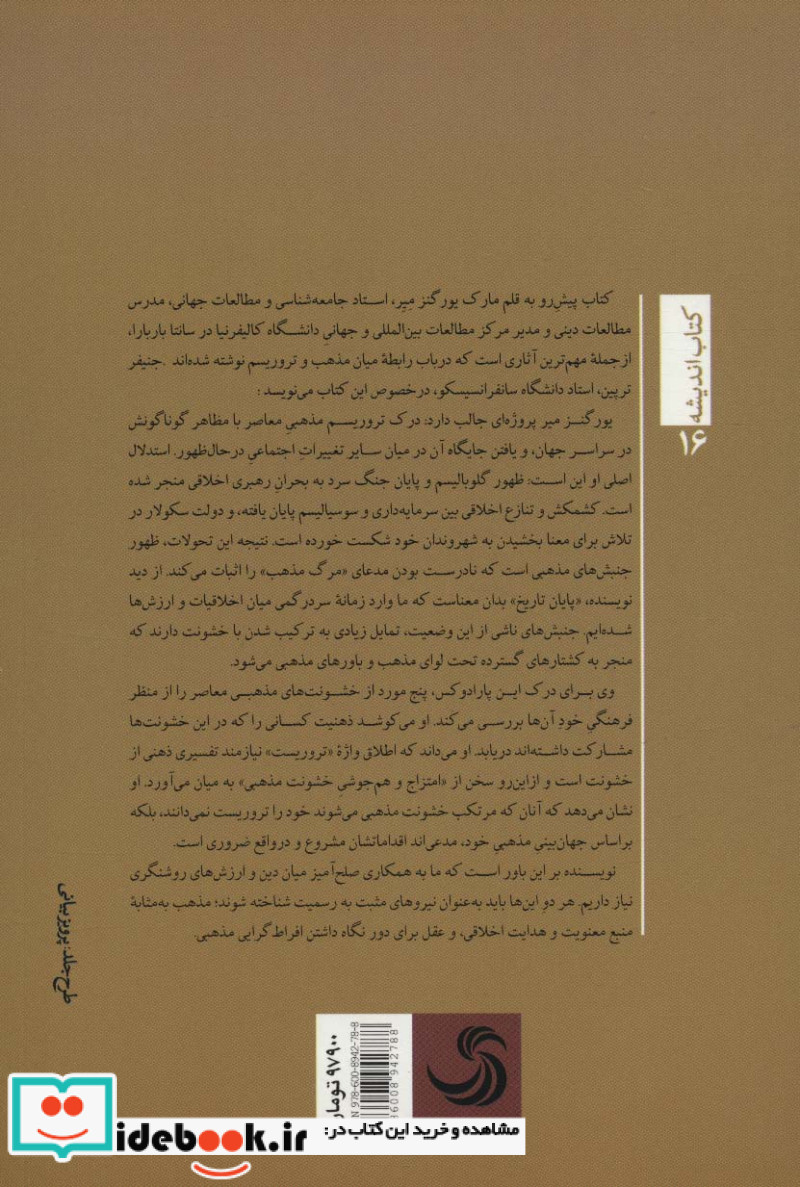 کتاب اندیشه
۱۶
کتاب پیش‌رو به قلم مارک یورگنز میِر، استاد جامعه‌شناسی و مطالعات جهانی، مدرس
مطالعات دینی و مدیر مرکز مطالعات بین‌المللی و جهانیِ دانشگاه کالیفرنیا در سانتا باربارا،
ازجملهٔ مهم‌ترین آثاری است که درباب رابطهٔ میان مذهب و تروریسم نوشته شده‌اند .جنیفر
ترپین، استاد دانشگاه سانفرانسیسکو، درخصوص این کتاب می‌نویسد :
یورگنز میر پروژه‌ای جالب دارد: درک تروریسم مذهبیِ معاصر با مظاهر گوناگونش
در سراسر جهان، و یافتن جایگاه آن در میان سایر تغییراتِ اجتماعیِ درحال‌ظهور. استدلال
اصلی او این است: ظهور گلوبالیسم و پایان جنگ سرد به بحرانِ رهبری اخلاقی منجر شده
است. کشمکش و تنازع اخلاقی بین سرمایه‌داری و سوسیالیسم پایان یافته، و دولت سکولار در
تلاش برای معنا بخشیدن به شهروندان خود شکست خورده است. نتیجه این تحولات، ظهور
جنبش‌های مذهبی است که نادرست بودن مدعای «مرگ مذهب» را اثبات می‌کند. از دید
نویسنده، «پایان تاریخ» بدان معناست که ما وارد زمانهٔ سردرگمی میان اخلاقیات و ارزش‌ها
شده‌ایم. جنبش‌های ناشی از این وضعیت، تمایل زیادی به ترکیب شدن با خشونت دارند که
منجر به کشتارهای گسترده تحت لوای مذهب و باورهای مذهبی می‌شود.
وی برای درک این پارادوکس، پنج مورد از خشونت‌های مذهبی معاصر را از منظر
فرهنگیِ خودِ آن‌ها بررسی می‌کند. او می‌کوشد ذهنیت کسانی را که در این خشونت‌ها
مشارکت داشته‌اند دریابد. او می‌داند که اطلاق واژهٔ «تروریست» نیازمند تفسیری ذهنی از
خشونت است و ازاین‌رو سخن از «امتزاج و هم‌جوشیِ خشونت مذهبی» به میان می‌آورد. او
نشان می‌دهد که آنان که مرتکب خشونت مذهبی می‌شوند خود را تروریست نمی‌دانند، بلکه
براساس جهان‌بینیِ مذهبیِ خود، مدعی‌اند اقداماتشان مشروع و درواقع ضروری است.
نویسنده بر این باور است که ما به همکاری صلح‌آمیز میان دین و ارزش‌های روشنگری
نیاز داریم. هر دو این‌ها باید به‌عنوان نیروهای مثبت به رسمیت شناخته شوند؛ مذهب به‌مثابهٔ
منبع معنویت و هدایت اخلاقی، و عقل برای دور نگاه داشتن افراط‌گرایی مذهبی.
طرح جلد: پرویز بیانی
۹۷۹۰۰ تومان
N 978-600-8942-78-8
86008 942788
مشاهده و خرید این کتاب در:
idebook.ir